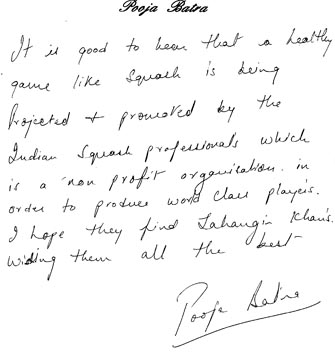 Pooja Batra
It is good to hear that a healthy
game like Squash is being
Projected + promoted by the
Indian Squash professionals which
is a non profit organisation. in
order to produce world class players.
I hope they find Jahangir Khan's.
wishing them all the best
Pooja Batra